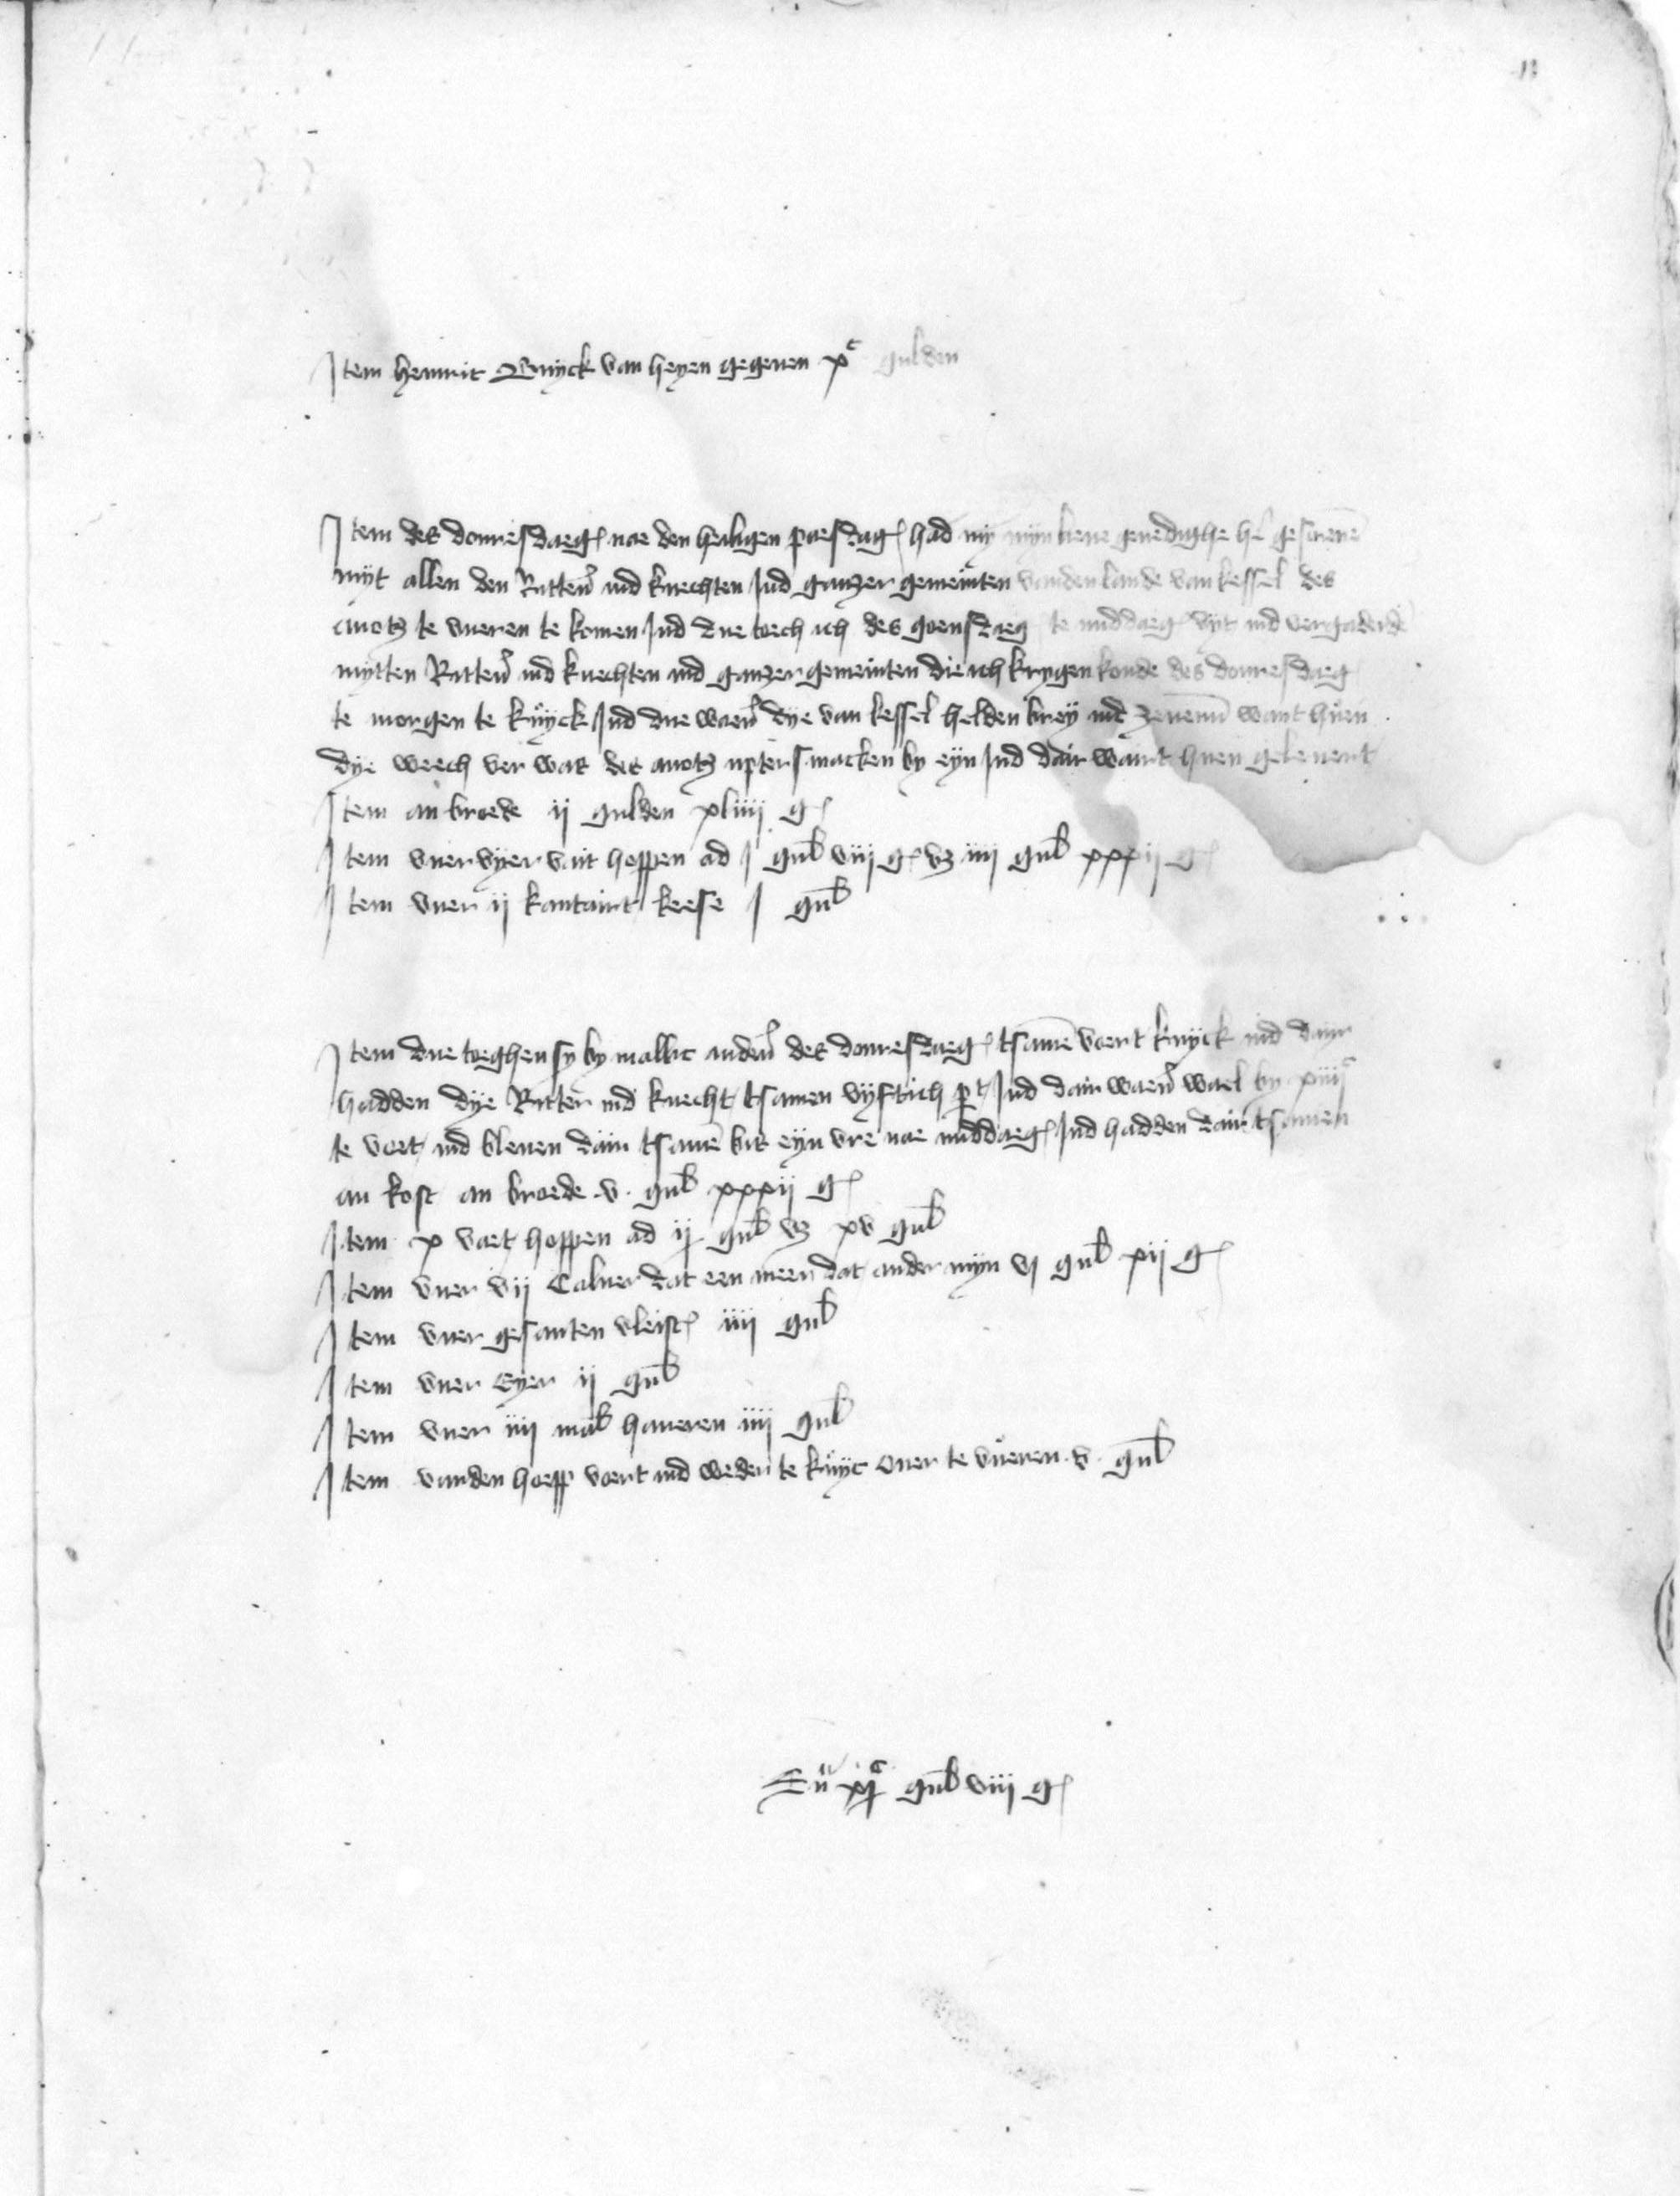 11
Item henric Buyck van heyen gegeuen xc gulden
Item des donresdaegs nae den heiligen paesdag had my myn lieue genedighe her gescreuē
myt allen den Ritterē ind knechten Ind ganzer gemeinten vanden lande van kessel des
auotz te vueren te komen Ind due toech ich des goensdaeg te middaeg vyt ind vergaderde
mytten Ritterē ind knechten ind ganzer gemeinten die ich krygen konde des donresdaeg
te morgen te kuyck Ind due waerē dye van kessel helden brey ind zeuenm̄ want huen
dye weech ver was des auotz upter smacken by eyn Ind dair wairt huen geleuert
Item an broede ij gulden xliiij g
Item vuer vyer vait hoppen ad j gul viij g vz iiij gul xxxij g
Item vuer ij kantairt keese j gul
Item due toeghen sy by mallic anderē des donresdaeg tsamē voert kuyck ind dair
hadden dye Ritter ind knecht tsamen vyftich pt Ind dair waerē wael by xiiijc
te voet ind bleuen dair tsamē bis eyn vre nae middaeg Ind hadden dair tsamen
an kost an broede .v. gul xxxij g
Item x vaet hoppen ad ij gul vz xv gul
Item vuer vij Caluer dat een meer dat ander myn vj gul xij g
Item vuer gesauten vleisc iiij gul
Item vuer Eyer ij gul
Item vuer iiij mal haueren iiij gul
Item vanden hoepp voert ind weder te kuyc ouer te vueren .v. gul
Su xjc gul viij g